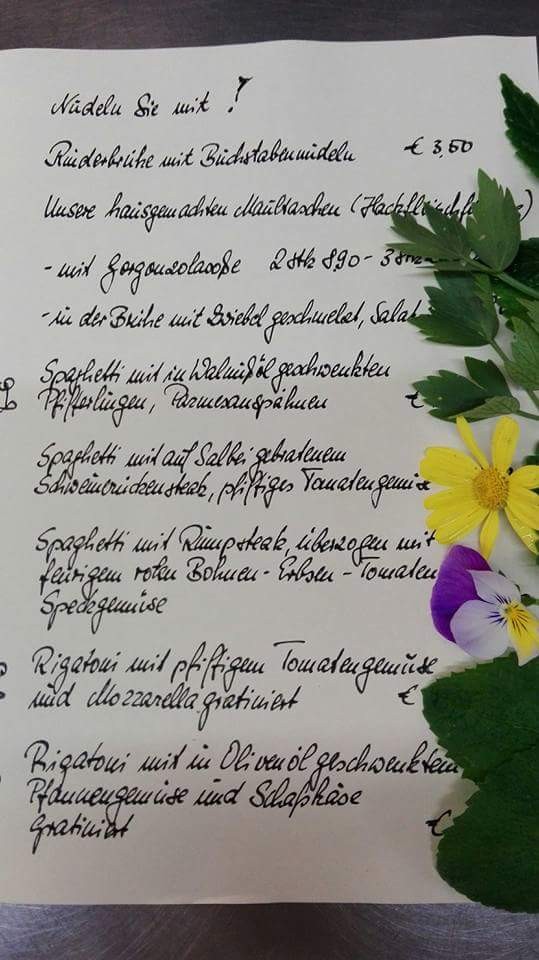 Nudeln Sie mit !
Rinderbrühe mit Buchstabennudeln € 3,50
Unsere hausgemachten Maultaschen
- mit Gorgonzolasoße 2 Stk 8,90 -
- in der Brühe mit Zwiebel geschmelzt, Salat
Spaghetti mit in Walnußöl geschwenkten
Pfifferlingen, Parmesanspähnen €
Spaghetti mit auf Salbei gebratenem
Schweinerückensteak, pfiffiges Tomatengemüse
Spaghetti mit Rumpsteak, überzogen mit
feurigem roten Bohnen - Erbsen - Tomaten
Speckgemüse
Rigatoni mit pfiffigem Tomatengemüse
und Mozzarella gratiniert €
Rigatoni mit in Olivenöl geschwenktem
Pfannengemüse und Schafskäse
gratiniert €